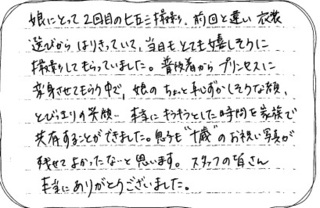 娘にとって2回目の七五三撮影。前回と違い衣装
選びからはりきっていて、当日もとても嬉しそうに
撮影してもらっていました。普段着からプリンセスに
変身させてもらう中で、娘のちょっと恥ずかしそうな顔、
とびきりの笑顔… 本当にキラキラとした時間を家族で
共有することができました。思うも"七歳"のお祝い写真が
残せてよかったなーと思います。スタッフの皆さん
本当にありがとうございました。